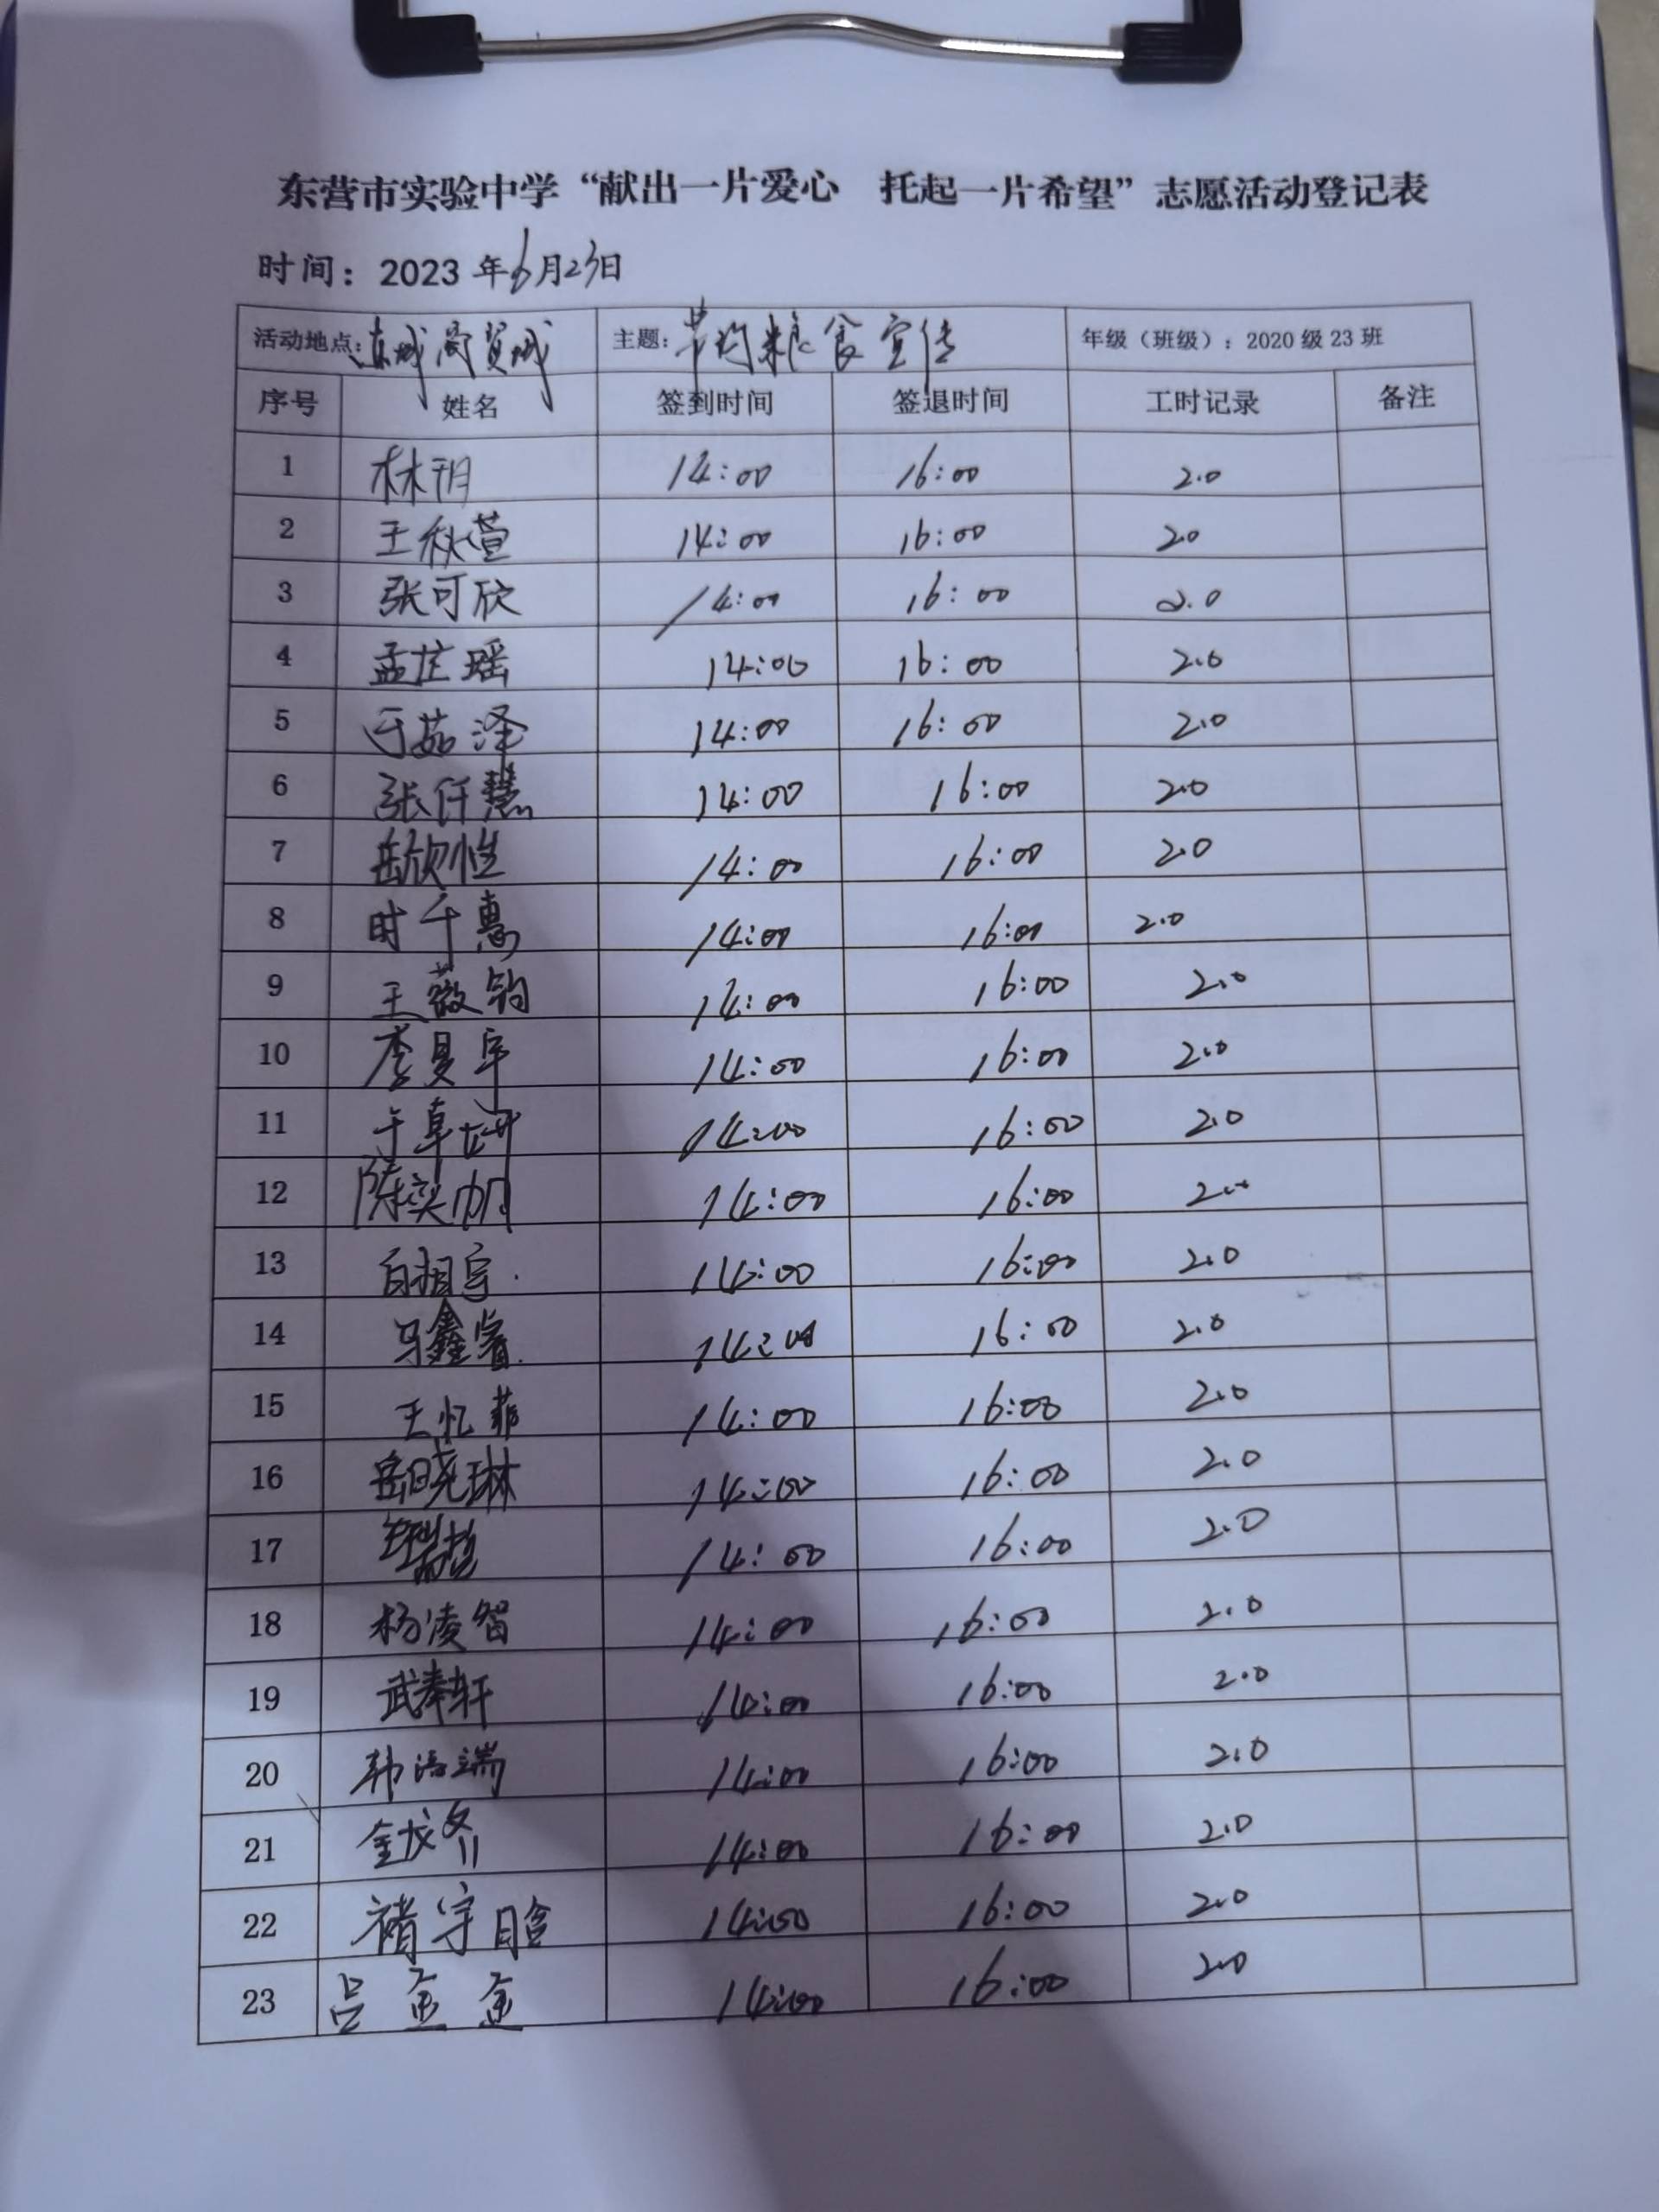 东营市实验中学“献出一片爱心 托起一片希望”志愿活动登记表
时间：2023年6月23日
活动地点：东城商贸城 主题：节约粮食宣传 年级（班级）：2020级23班
序号 姓名 签到时间 签退时间 工时记录 备注
1 林玥 14:00 16:00 2.0
2 王秋萱 14:00 16:00 20
3 张可欣 14:00 16:00 2.0
4 孟芷瑶 14:00 16:00 2.0
5 于茹泽 14:00 16:00 2.0
6 张仟慧 14:00 16:00 2.0
7 岳欣 14:00 16:00 2.0
8 时千惠 14:00 16:00 2.0
9 王薇钧 14:00 16:00 2.0
10 李昊宇 14:00 16:00 2.0
11 于卓 14:00 16:00 2.0
12 陈奕帆 14:00 16:00 2.0
13 白相宇 14:00 16:00 2.0
14 马鑫睿 14:00 16:00 2.0
15 王忆菲 14:00 16:00 2.0
16 岳晓琳 14:00 16:00 2.0
17 14:00 16:00 2.0
18 杨凌智 14:00 16:00 2.0
19 武奉轩 14:00 16:00 2.0
20 韩语端 14:00 16:00 2.0
21 金 14:00 16:00 2.0
22 褚宇晗 14:00 16:00 2.0
23 吕金金 14:00 16:00 2.0